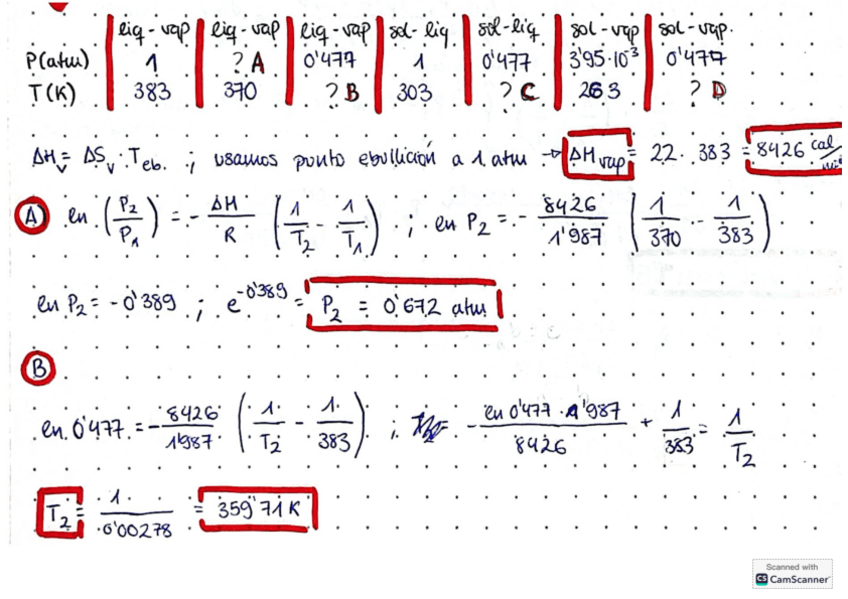 liq-vap liq-vap liq-vap sol-liq sol-liq sol-vap sol-vap.
P(atm) 1 ? A 0'477 1 0'477 3'95·10⁻³ 0'477
T(K) 383 370 ? B 303 ? C 263 ? D
ΔHv = ΔSv · Teb. ; usamos punto ebullición a 1 atm → ΔHvap = 22 · 383 = 8426 cal/
A en (P2/P1) = - ΔH/R (1/T2 - 1/T1) ; en P2 = - 8426/1'987 (1/370 - 1/383)
en P2 = -0'389 ; e^-0'389 = P2 = 0'672 atm
B
en 0'477 = - 8426/1'987 (1/T2 - 1/383) ; - en 0'477 · 1'987/8426 + 1/383 = 1/T2
T2 = 1/0'00278 = 359'71 K
Scanned with
CS CamScanner